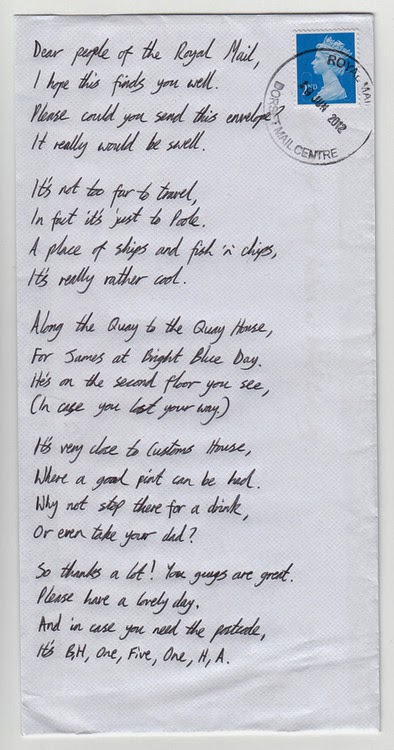 Dear people of the Royal Mail,
I hope this finds you well.
Please could you send this envelope?
It really would be swell.
It's not too far to travel,
In fact it's just to Poole.
A place of ships and fish 'n' chips,
It's really rather cool.
Along the Quay to the Quay House,
For James at Bright Blue Day.
He's on the second floor you see,
(In case you lost your way.)
It's very close to Customs House,
Where a good pint can be had.
Why not stop there for a drink,
Or even take your dad?
So thanks a lot! You guys are great.
Please have a lovely day.
And in case you need the postcode,
It's B,H, One, Five, One, H, A.
2ND
ROYAL MAIL
DORSET MAIL CENTRE
2012